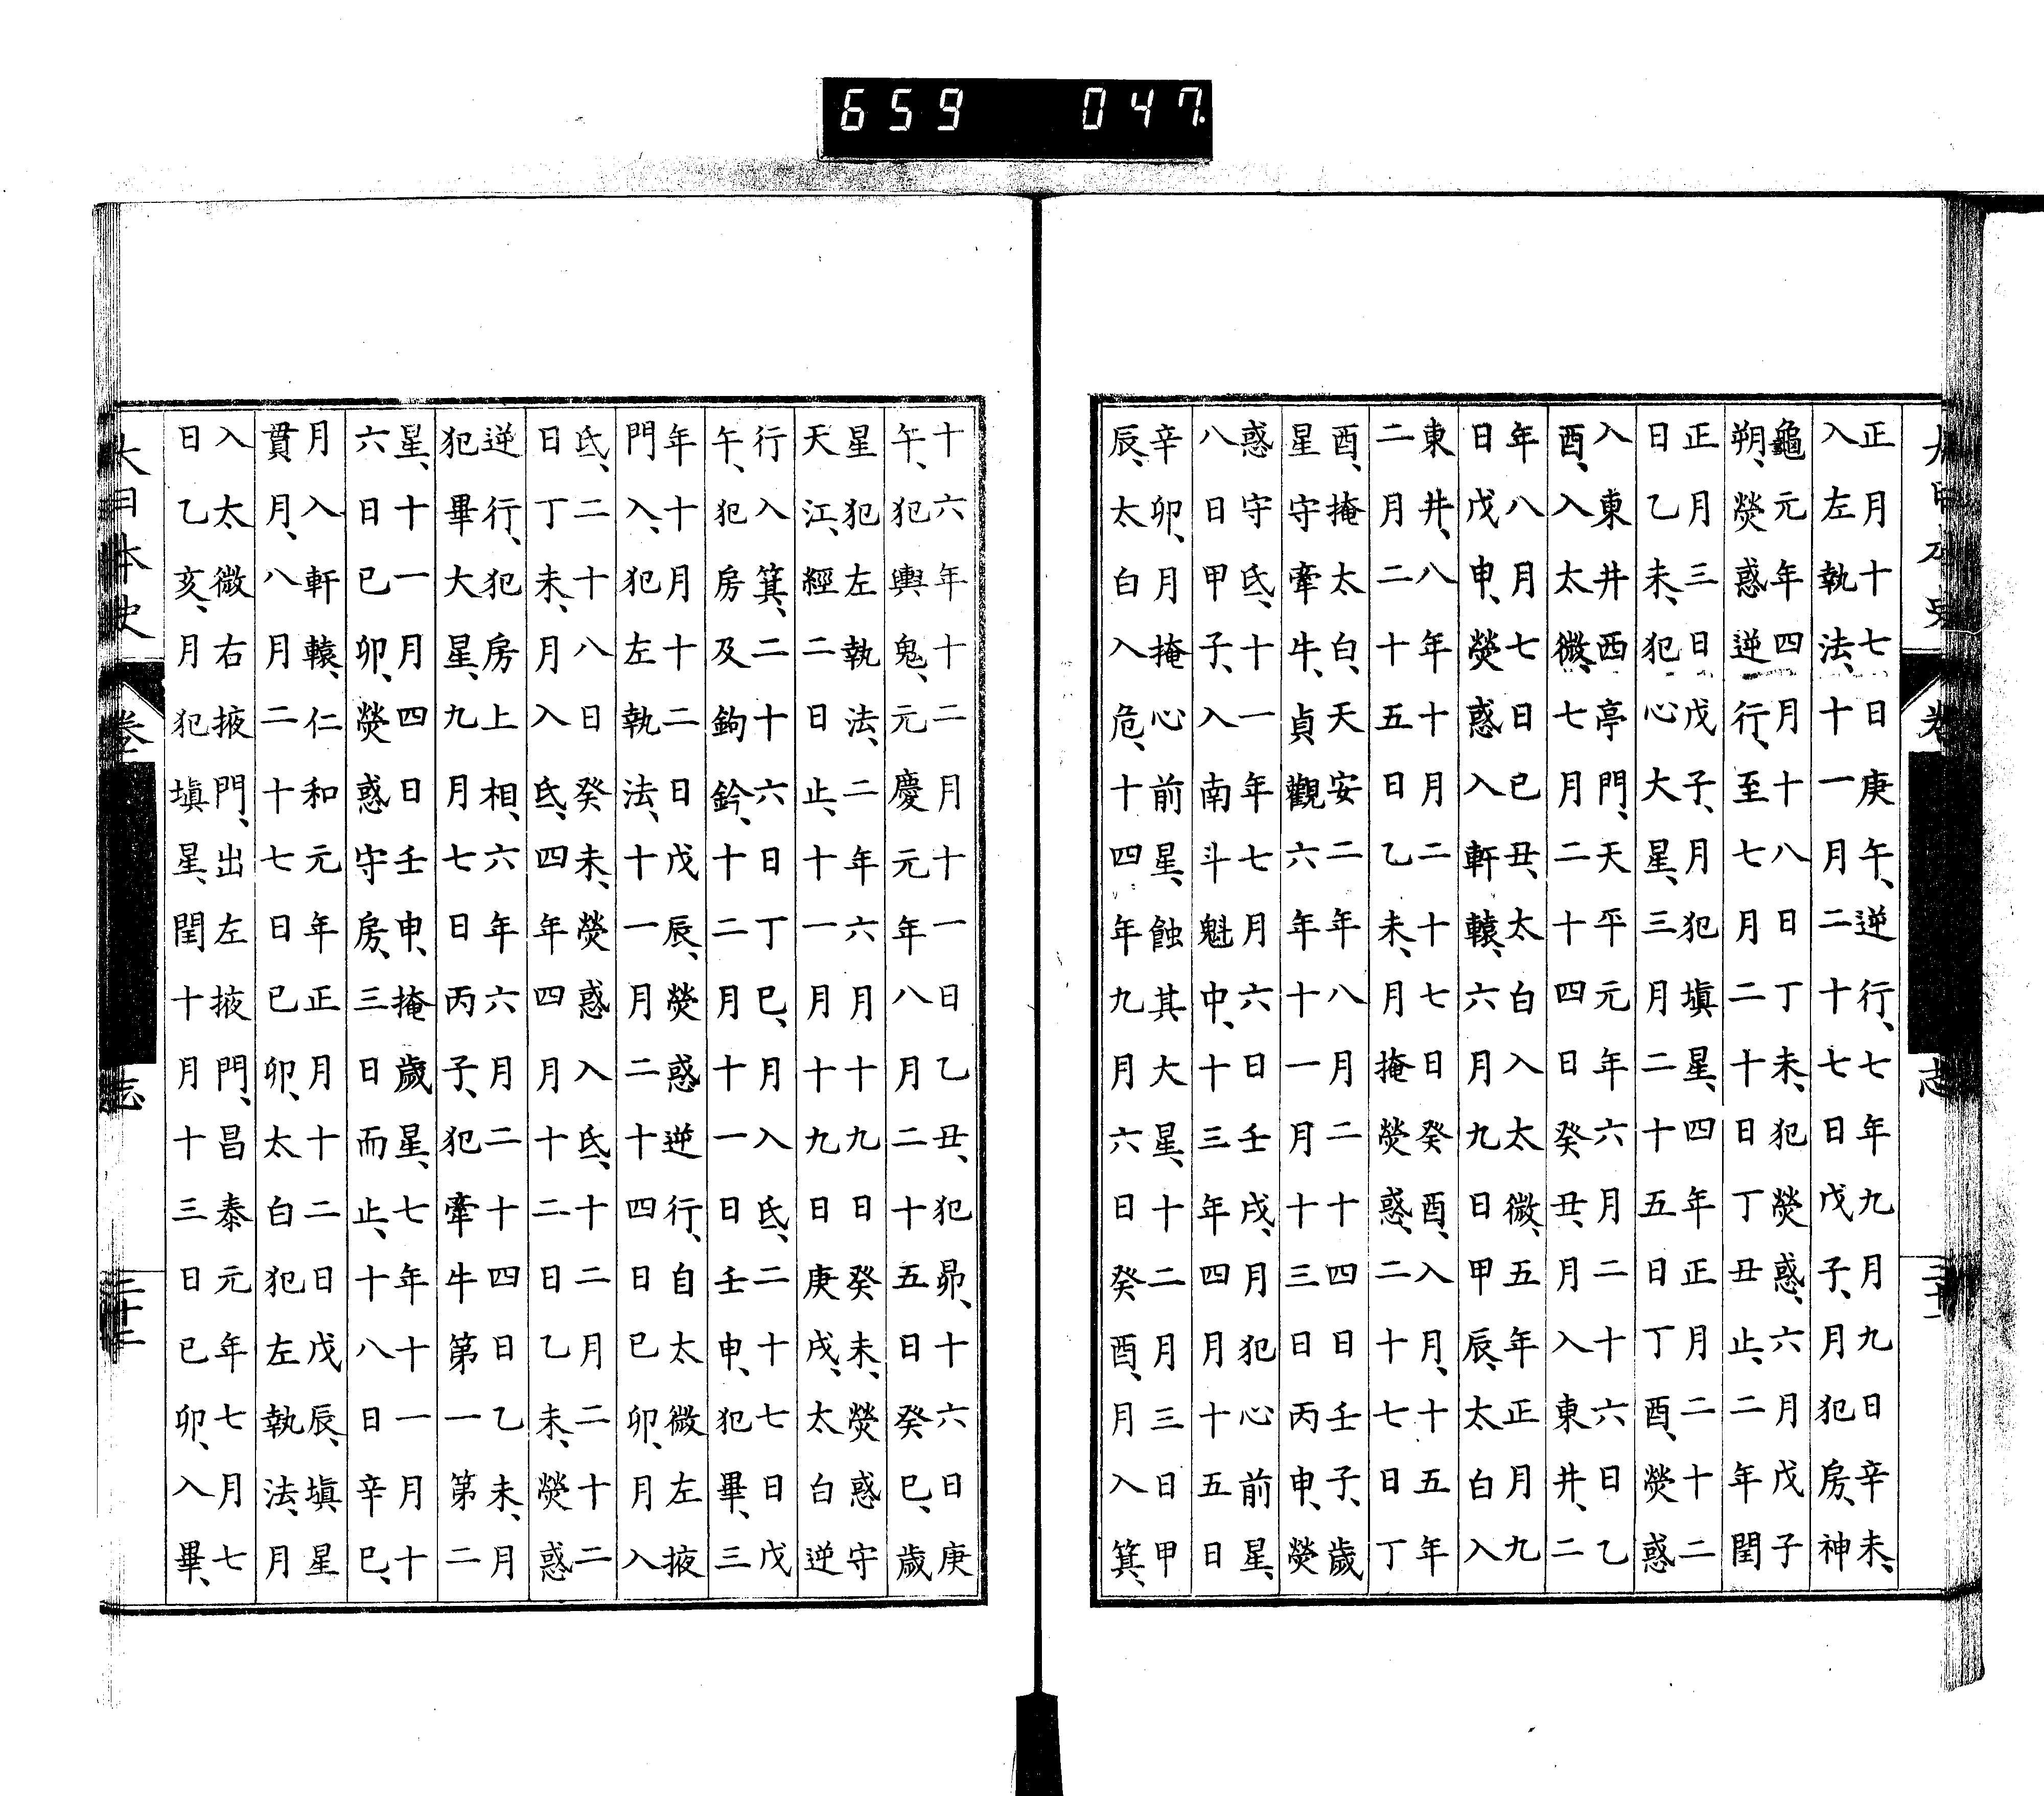 659 047
正月十七日庚午、逆行、七年九月九日辛未、
入左執法、十一月二十七日戊子、月犯房、神
龜元年四月十八日丁未、犯熒惑、六月戊子
朔、熒惑逆行、至七月二十日丁丑止、二年閏
正月三日戊子、月犯塡星、四年正月二十二
日乙未、犯心大星、三月二十五日丁酉、熒惑
入東井西亭門、天平元年六月二十六日乙
酉、入太微、七月二十四日癸丑、月入東井、二
年八月七日己丑、太白入太微、五年正月九
日戊申、熒惑入軒轅、六月九日甲辰、太白入
東井、八年十月二十七日癸酉、入月、十五年
二月二十五日乙未、月掩熒惑、二十七日丁
酉、掩太白、天安二年八月二十四日壬子、歲
星守牽牛、貞觀六年十一月十三日丙申、熒
惑守氐、十一年七月六日壬戌、月犯心前星、
八日甲子、入南斗魁中、十三年四月十五日
辛卯、月掩心前星、蝕其大星、十二月三日甲
辰、太白入危、十四年九月六日癸酉、月入箕、
十六年十二月十一日乙丑、犯昴、十六日庚
午、犯輿鬼、元慶元年八月二十五日癸巳、歲
星犯左執法、二年六月十九日癸未、熒惑守
天江、經二日止、十一月十九日庚戌、太白逆
行入箕、二十六日丁巳、月入氐、二十七日戊
午、犯房及鉤鈐、十二月十一日壬申、犯畢、三
年十月十二日戊辰、熒惑逆行、自太微左掖
門入、犯左執法、十一月二十四日己卯、月入
氐、二十八日癸未、熒惑入氐、十二月二十二
日丁未、月入氐、四年四月十二日乙未、熒惑
逆行、犯房上相、六年六月二十四日乙未、月
犯畢大星、九月七日丙子、犯牽牛第一第二
星、十一月四日壬申、掩歲星、七年十一月十
六日己卯、熒惑守房、三日而止、十八日辛巳、
月入軒轅、仁和元年正月十二日戊辰、塡星
貫月、八月二十七日己卯、太白犯左執法、月
入太微右掖門、出左掖門、昌泰元年七月七
日乙亥、月犯塡星、閏十月十三日己卯、入畢、
大日本史 卷 志 三十二